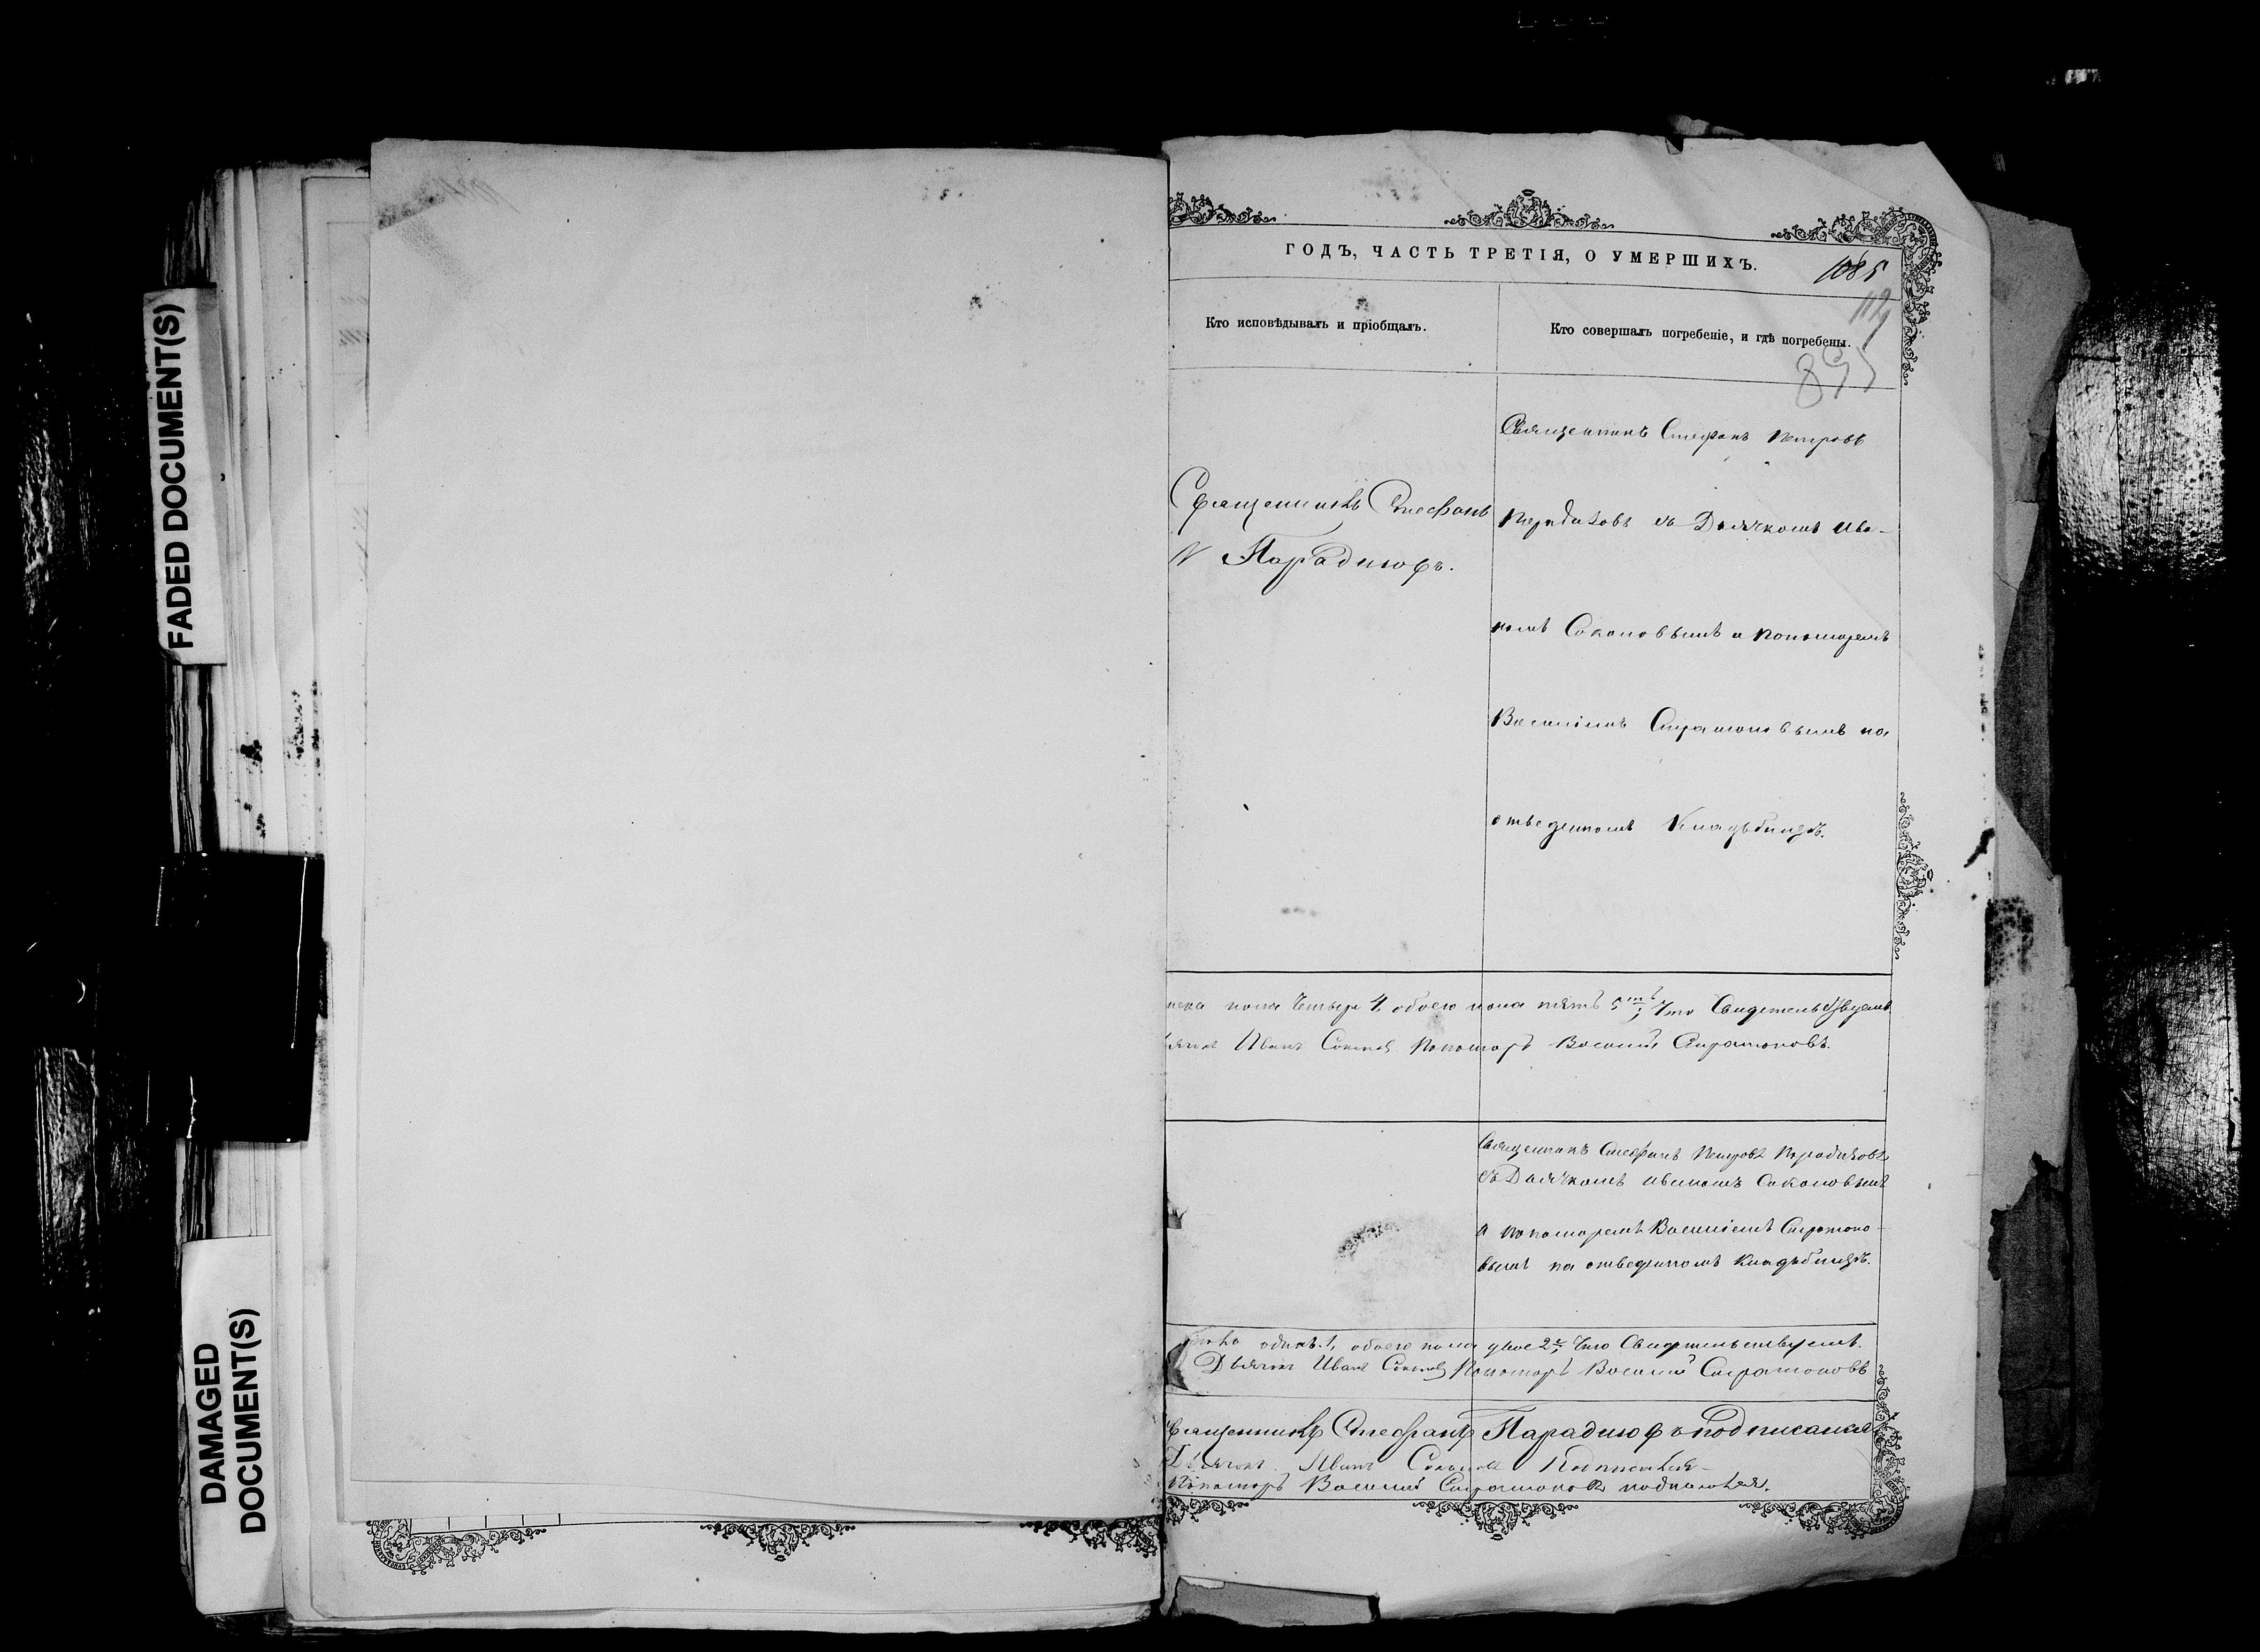 FADED DOCUMENT(S)
DAMAGED
DOCUMENT(S)
ГОДЪ, ЧАСТЬ ТРЕТІЯ, О УМЕРШИХЪ.
1085
112
895
Кто исповѣдывалъ и пріобщалъ.
Кто совершалъ погребеніе, и гдѣ погребены.
Священникъ Стефанъ
Парадизовъ.
Священникъ Стефанъ Петровъ
Парадизовъ съ Дьячкомъ Ива-
номъ Соколовымъ и пономаремъ
Василіемъ Стратоновымъ на
отведенномъ Кладбищѣ.
пола Четыре 4, обоего пола пять 5ть Что Свидетельствуемъ
Иванъ Соколовъ Пономарь Василій Стратоновъ.
Священникъ Стефанъ Петровъ Парадизовъ
съ Дьячкомъ Иваномъ Соколовымъ
и пономаремъ Василіемъ Стратоно-
вымъ на отведенномъ Кладбищѣ.
одна 1, обоего пола двое 2е Что Свидетельствуемъ.
Дьячекъ Иванъ Соколовъ Пономарь Василій Стратоновъ
Священникъ Стефанъ Парадизовъ подписался
Дьячекъ Иванъ Соколовъ Подписался
Пономарь Василій Стратоновъ подписался.